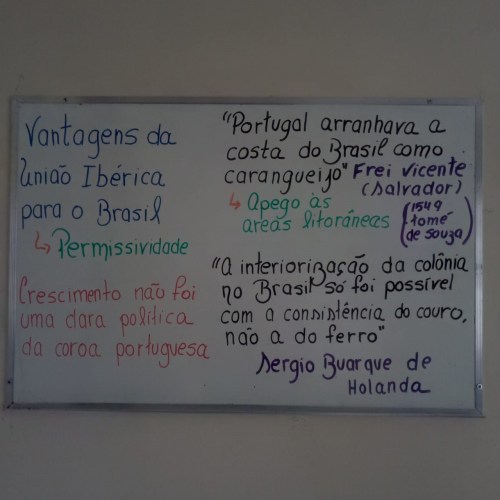 Vantagens da
União Ibérica
para o Brasil
↳ Permissividade
Crescimento não foi
uma clara política
da coroa portuguesa
"Portugal arranhava a
costa do Brasil como
carangueijo" Frei Vicente
(Salvador)
↳ Apego às
areas litorâneas
(1549
tomé
de souza)
"A interiorização da colônia
no Brasil só foi possível
com a consistência do couro,
não a do ferro"
Sergio Buarque de
Holanda